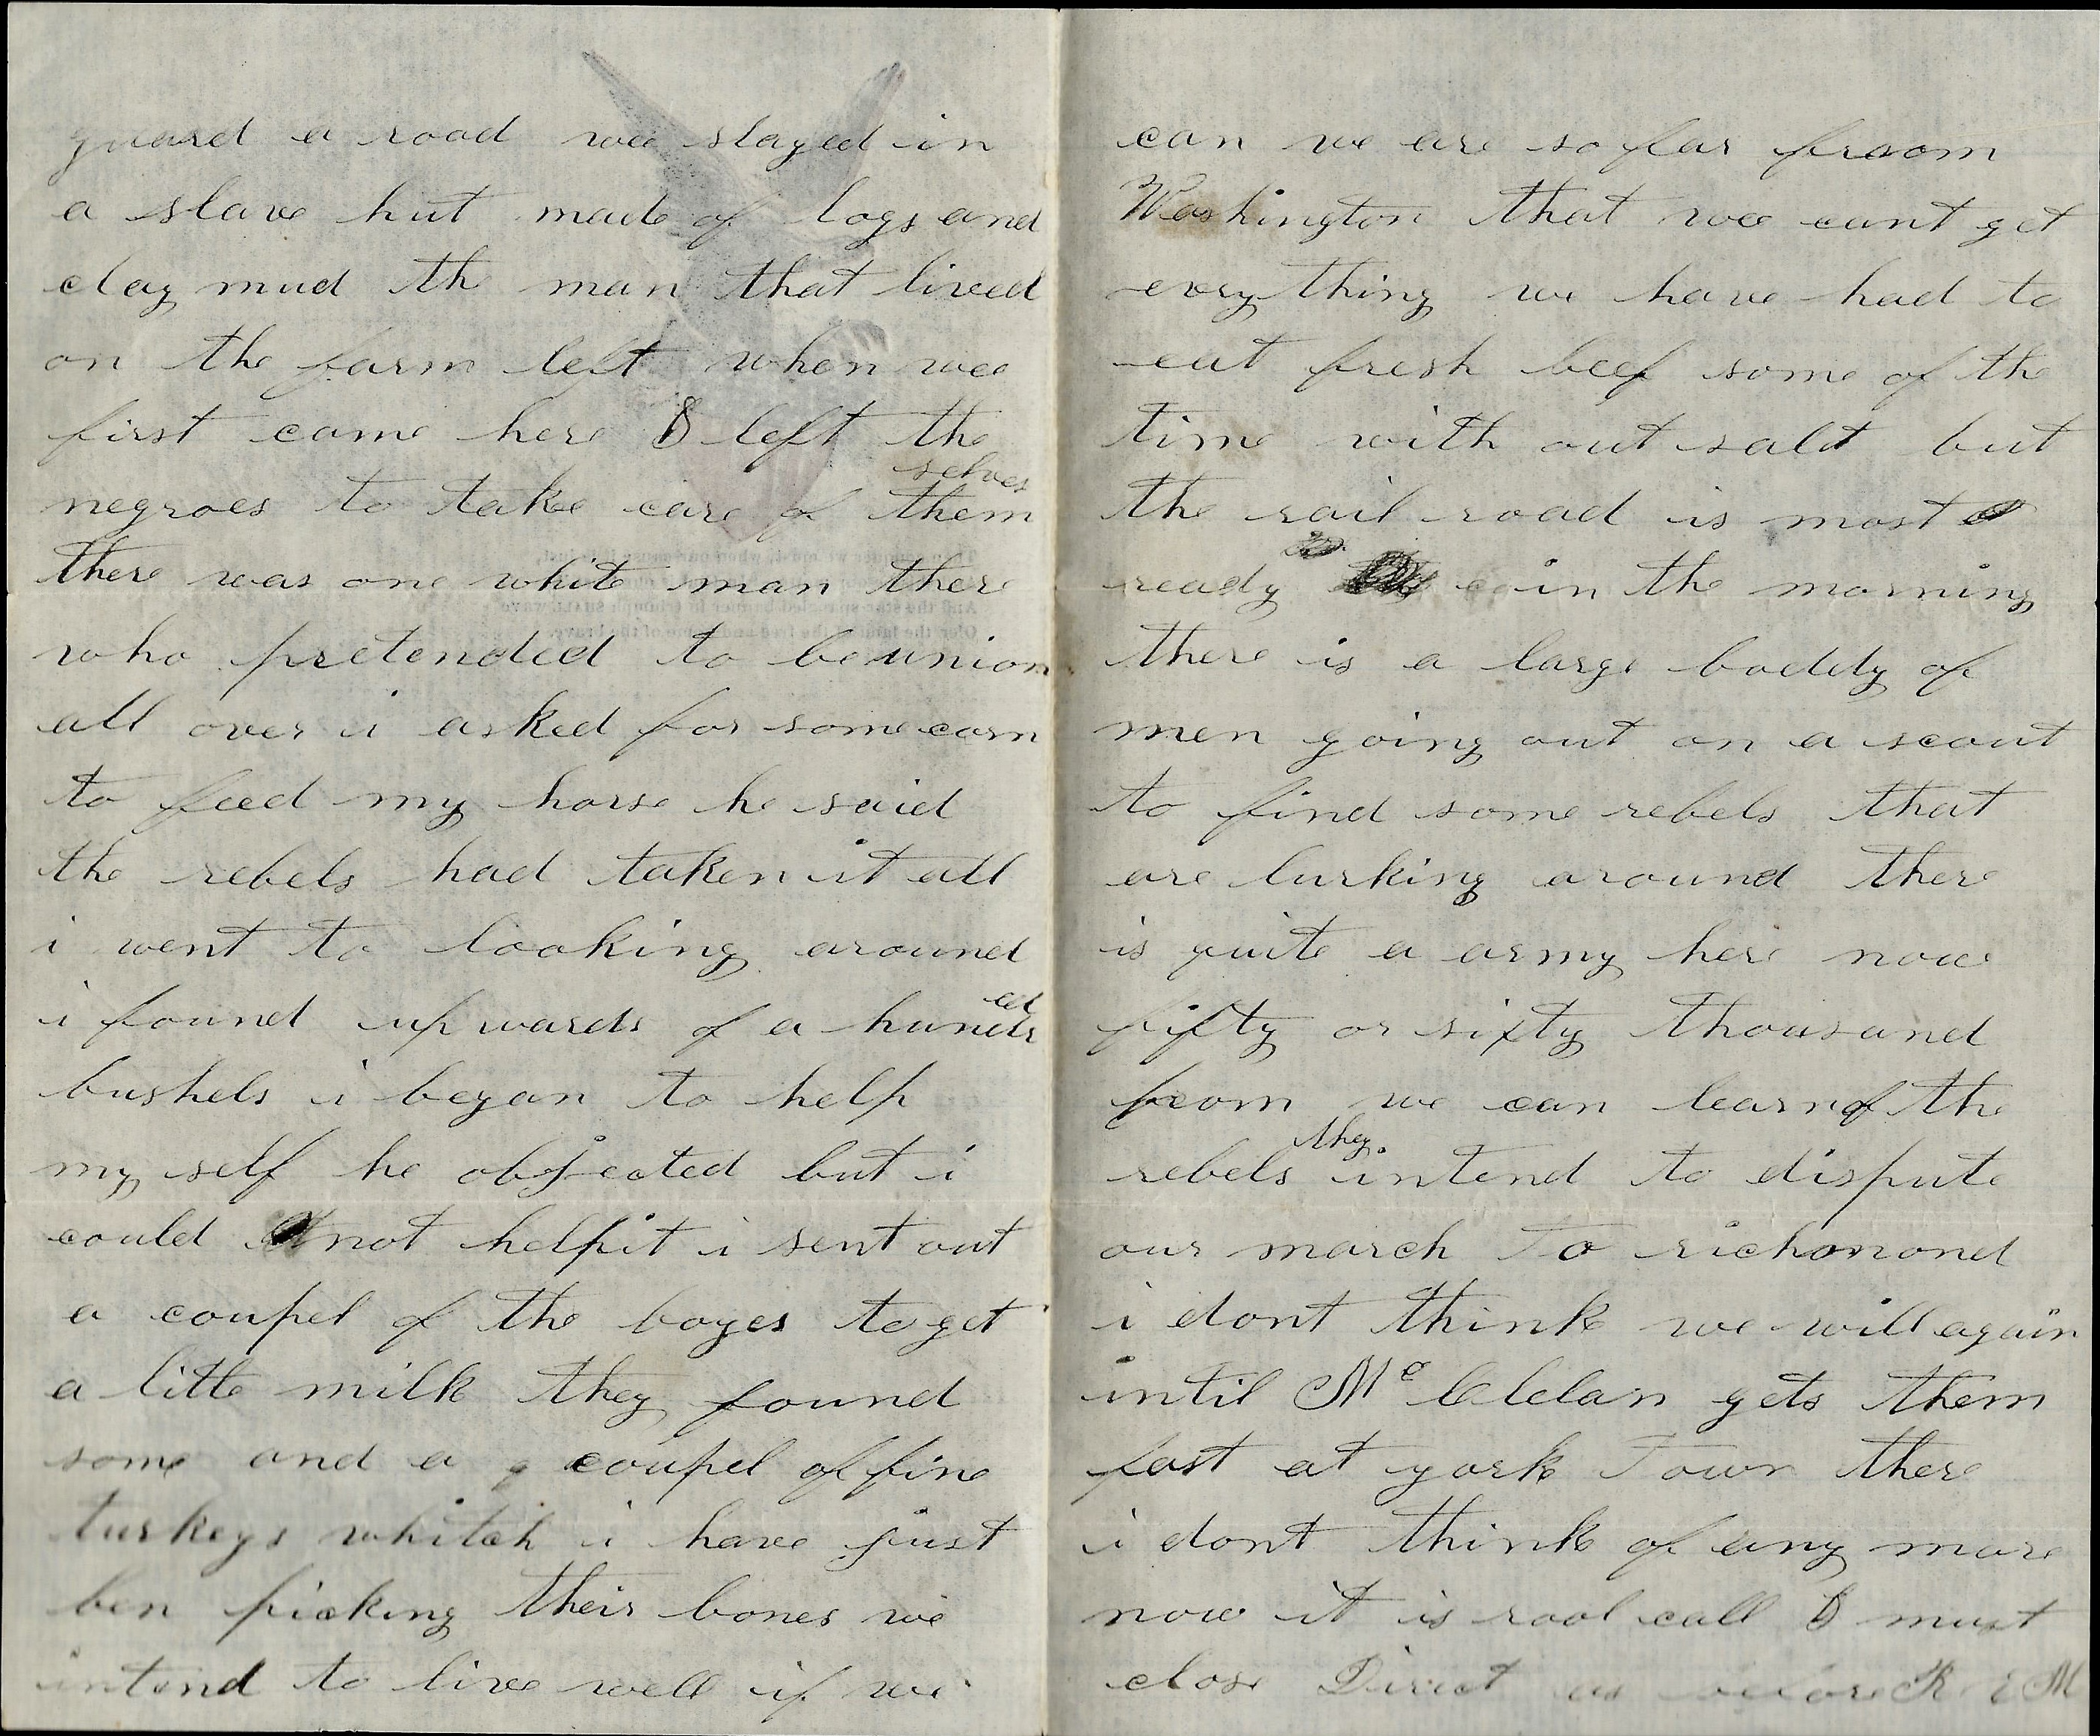 guard a road wee stayed in
a slave hut made of logs and
clay mud th man that lived
on the farm left when wee
first came here & left the
negroes to take care of themselves
there was one white man there
who pretended to be union
all over i asked for some corn
to feed my horse he said
the rebels had taken it all
i went to looking around
i found upwards of a hundred
bushels i began to help
my self he objected but i
could not help it i sent out
a coupel of the boyes to get
a litte milk they found
some and a coupel of fine
turkeys whitch i have just
ben picking their bones we
intend to live well if we
can we are so far froom
Washington that wee cant get
evry thing we have had to
eat fresh beef some of the
time with out salt but
the rail road is most
ready in the morning
there is a large boddy of
men going out on a scout
to find some rebels that
are lurking around there
is quite a army here now
fifty or sixty thousand
from we can learn of the
rebels they intend to dispute
our march To richmond
i dont think we will again
intil Mc Clelan gets them
fast at york Town there
i dont think of any more
now it is rool call & must
close Direct as before R E M